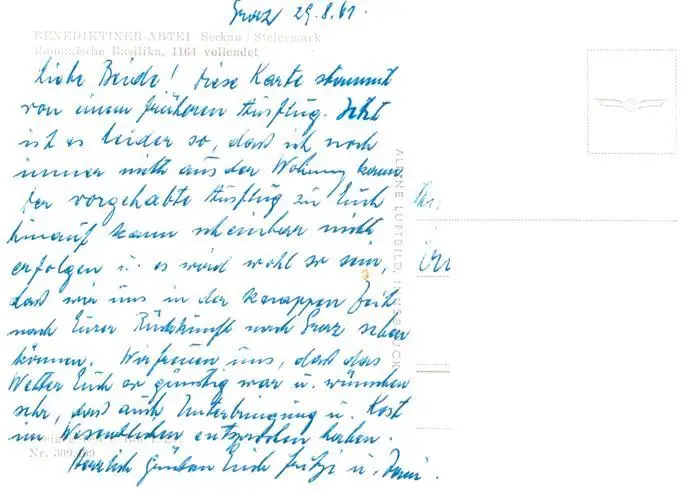 Graz 29.8.61.
BENEDIKTINER-ABTEI Seckau/Steiermark
Romanische Basilika, 1164 vollendet
Liebe Beide! Diese Karte stammt
von einem früheren Ausflug. Jetzt
ist es leider so, daß ich noch
immer nicht aus der Wohnung kann.
Der vorgehabte Ausflug zu Euch
hinauf kann scheinbar nicht
erfolgen u. es wird wohl so sein,
daß wir uns in der knappen Zeit
nach Eurer Rückkunft nach Graz sehen
können. Wir freuen uns, daß das
Wetter Euch so günstig war u. wünschen
sehr, daß auch Unterbringung u. Kost
im Wesentlichen entsprochen haben.
Nr. 309
Herzlich Grüßen Euch Fritzi u.
ALPINE LUFTBILD, INNSBRUCK